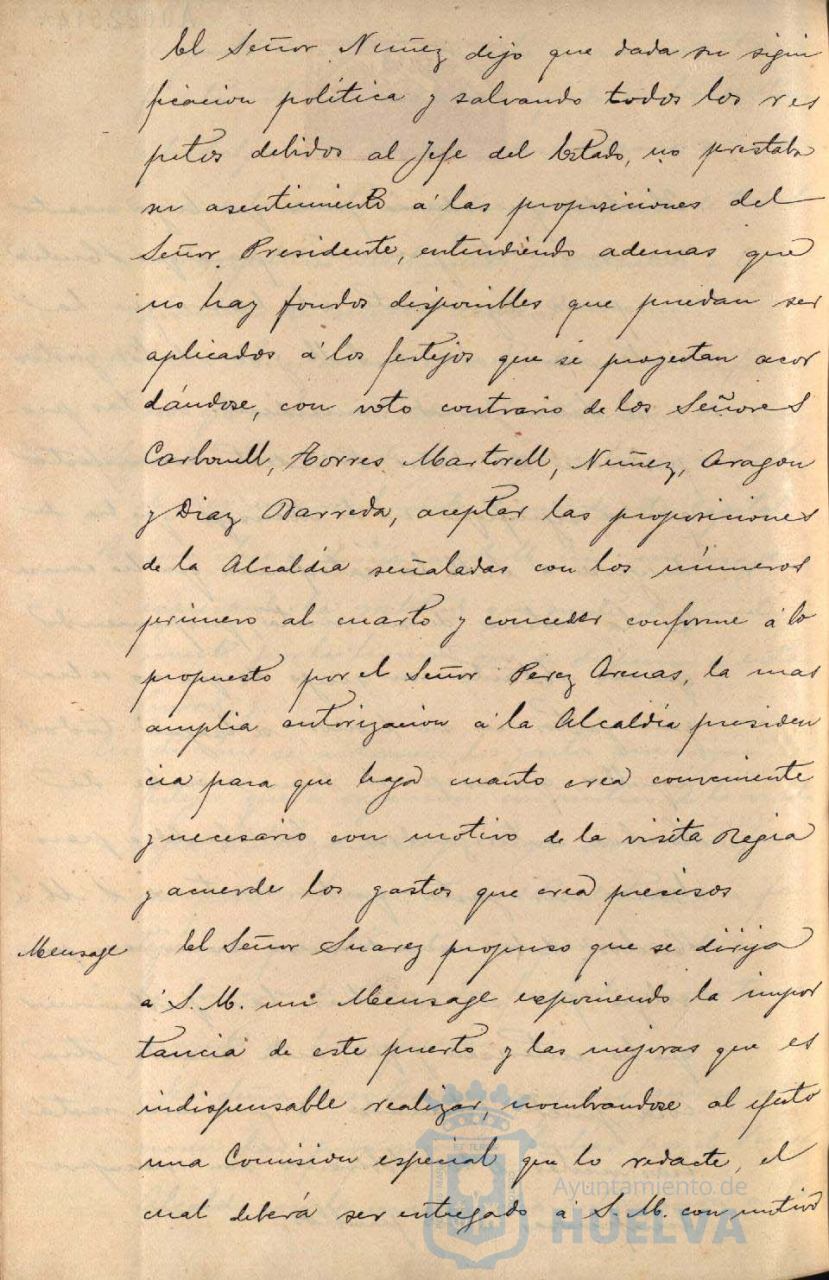 El Señor Nuñez dijo que dada su signi
ficacion política y salvando todos los res
petos debidos al Jefe del Estado, no prestaba
su asentimiento á las proposiciones del
Señor Presidente, entendiendo ademas que
no hay fondos disponibles que puedan ser
aplicados á los festejos que se proyectan acor
dándose, con voto contrario de los Señores
Carbonell, Torres Martorell, Nuñez, Aragon
y Diaz Barreda, aceptar las proposiciones
de la Alcaldía señaladas con los números
primero al cuarto y conceder conforme á lo
propuesto por el Señor Perez Arenas, la mas
amplia autorizacion á la Alcaldía presiden
cia para que haga cuanto crea conveniente
y necesario con motivo de la visita Regia
y acuerde los gastos que crea presisos
Mensage El Señor Suarez propuso que se dirija
á S. M. un Mensage exponiendo la impor
tancia de este puerto y las mejoras que es
indispensable realizar, nombrandose al efecto
una Comision especial que lo redacte, el
cual deberá ser entregado á S. M. con motivo
Ayuntamiento de
HUELVA